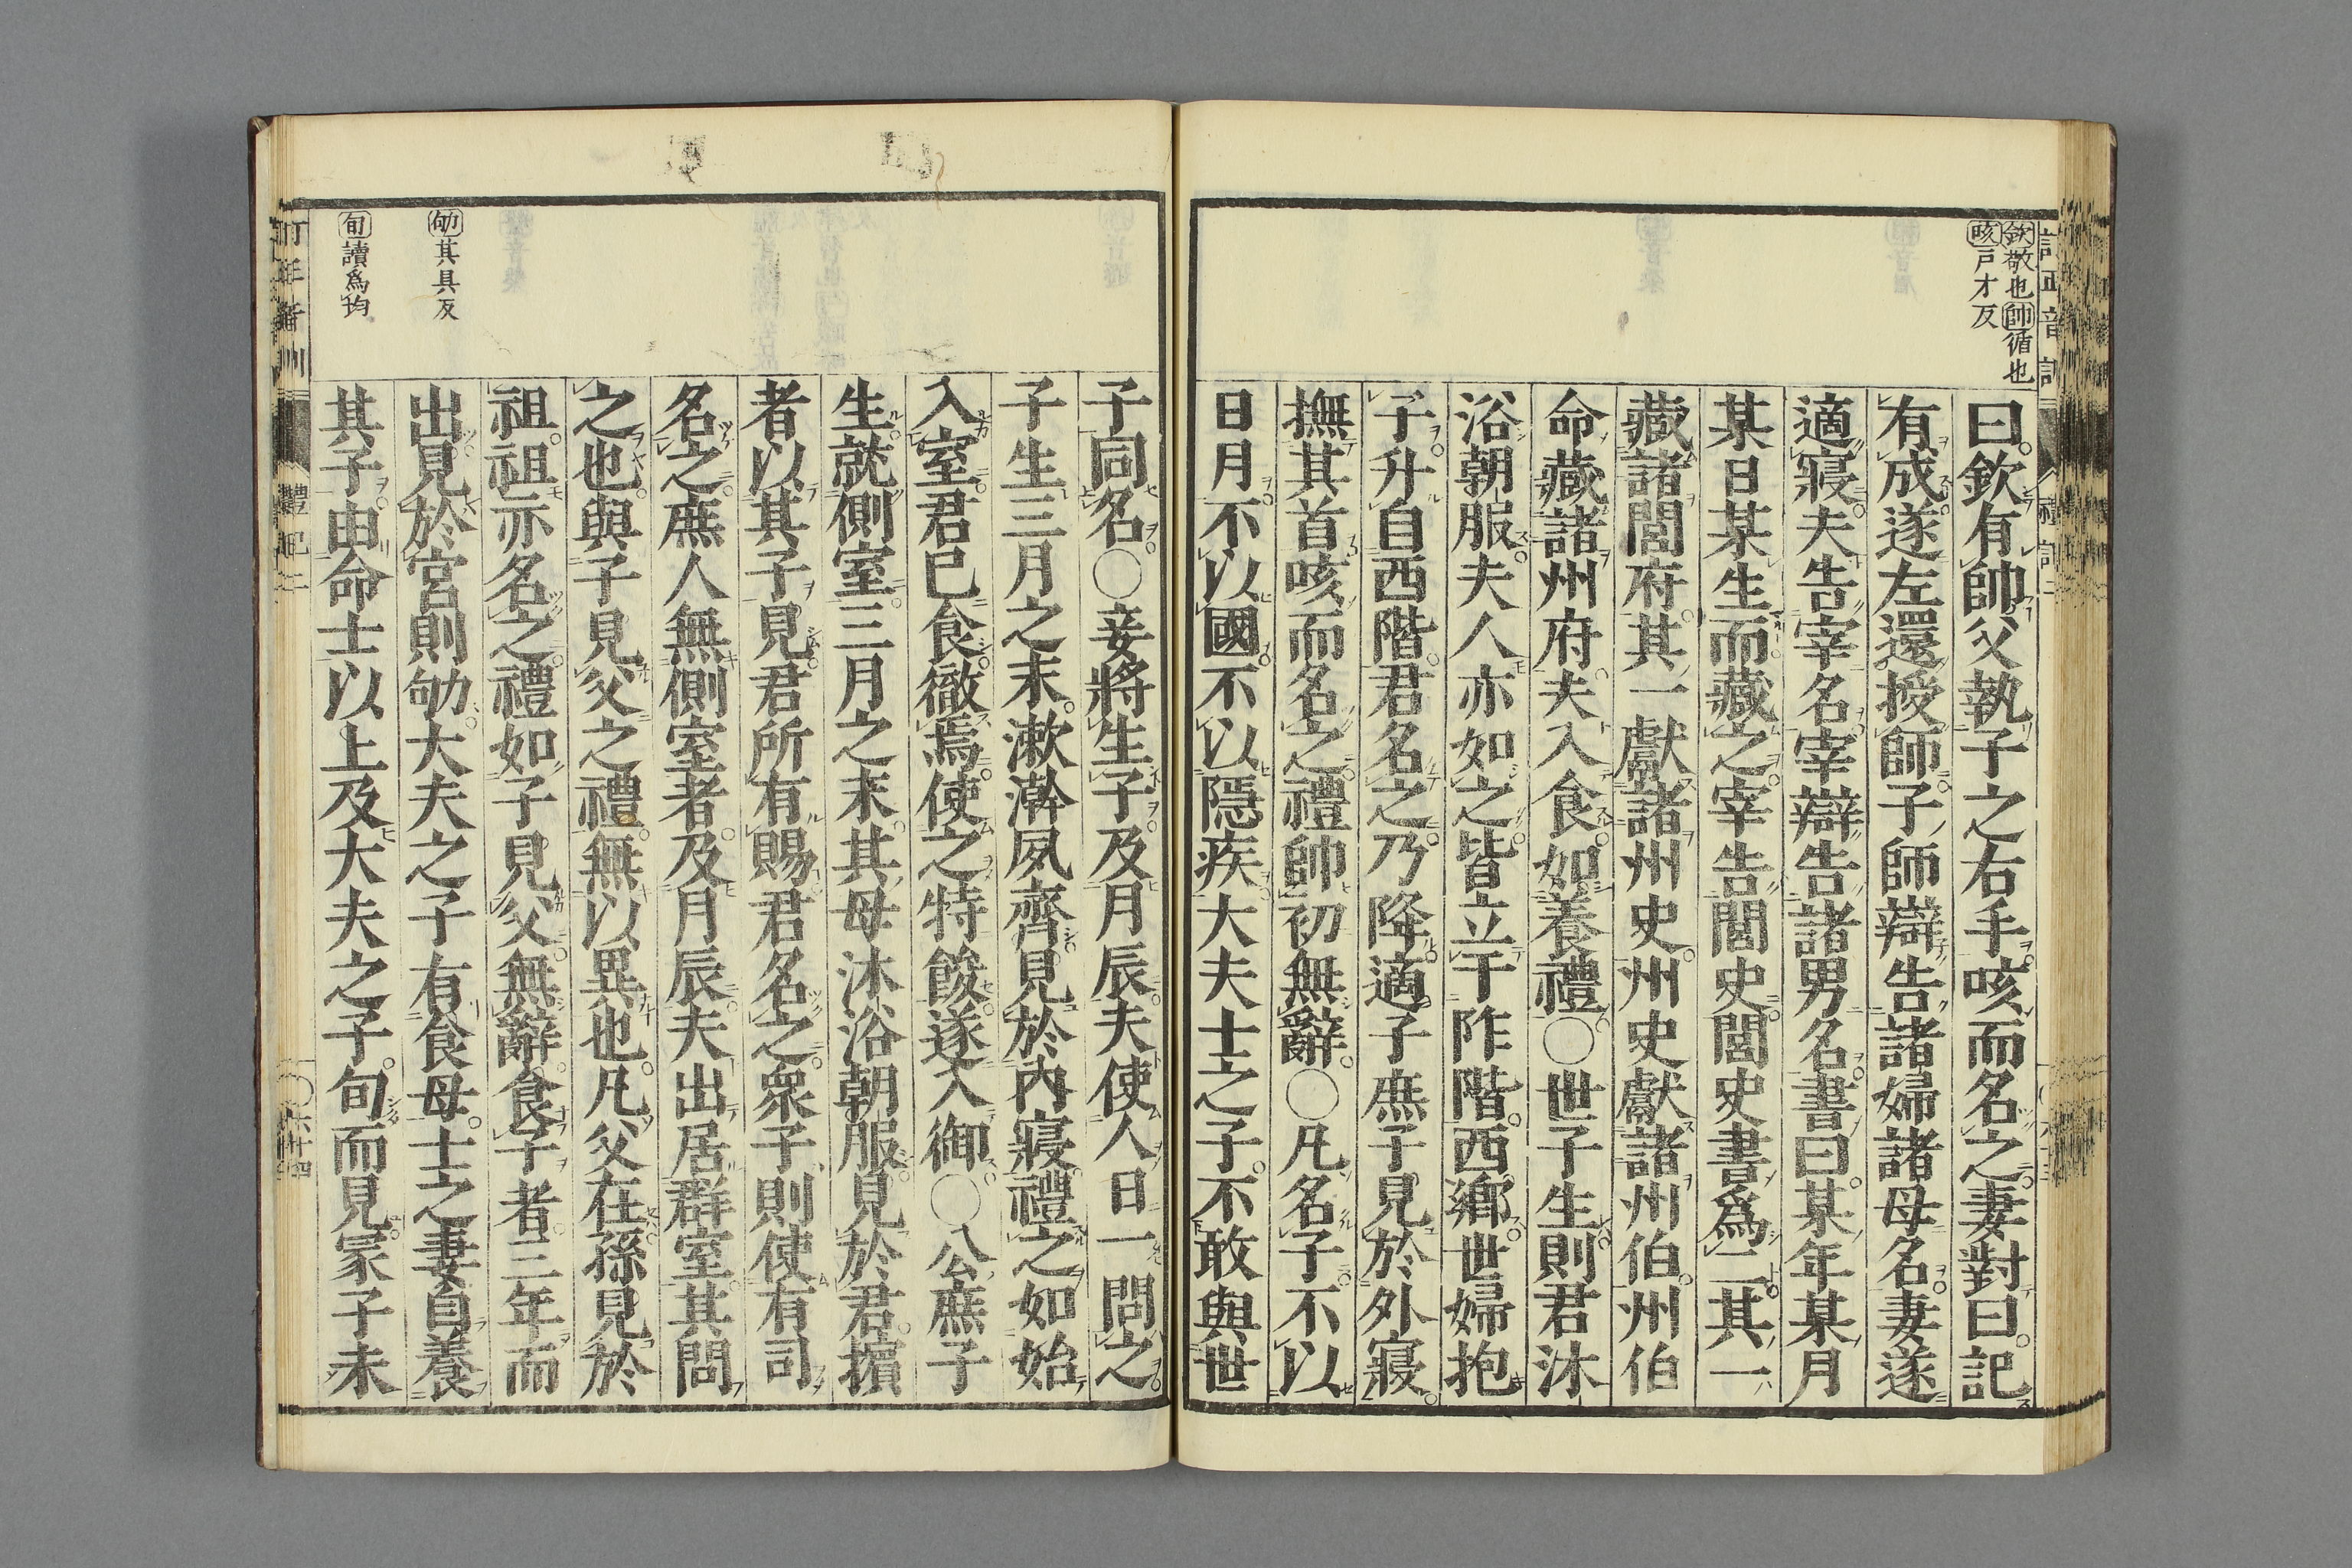 欽敬也帥循也
咳戸才反
曰欽有帥父執子之右手咳而名之妻對曰記
有成遂左還授師子師辯告諸婦諸母名妻遂
適寢夫告宰名宰辯告諸男名書曰某年某月
某日某生而藏之宰告閭史閭史書爲二其一
藏諸閭府其一獻諸州史州史獻諸州伯州伯
命藏諸州府夫入食如養禮○世子生則君沐
浴朝服夫人亦如之皆立于阼階西鄉世婦抱
子升自西階君名之乃降適子庶子見於外寢
撫其首咳而名之禮帥初無辭○凡名子不以
日月不以國不以隱疾大夫士之子不敢與世
子同名○妾將生子及月辰夫使人日一問之
子生三月之末漱澣夙齊見於內寢禮之如始
入室君已食徹焉使之特餕遂入御○公庶子
生就側室三月之末其母沐浴朝服見於君擯
者以其子見君所有賜君名之衆子則使有司
名之庶人無側室者及月辰夫出居群室其問
之也與子見父之禮無以異也凡父在孫見於
祖祖亦名之禮如子見父無辭食子者三年而
劬其具反
出見於宮則劬大夫之子有食母士之妻自養
旬讀爲均
其子由命士以上及大夫之子旬而見冢子未
禮記二
六十四